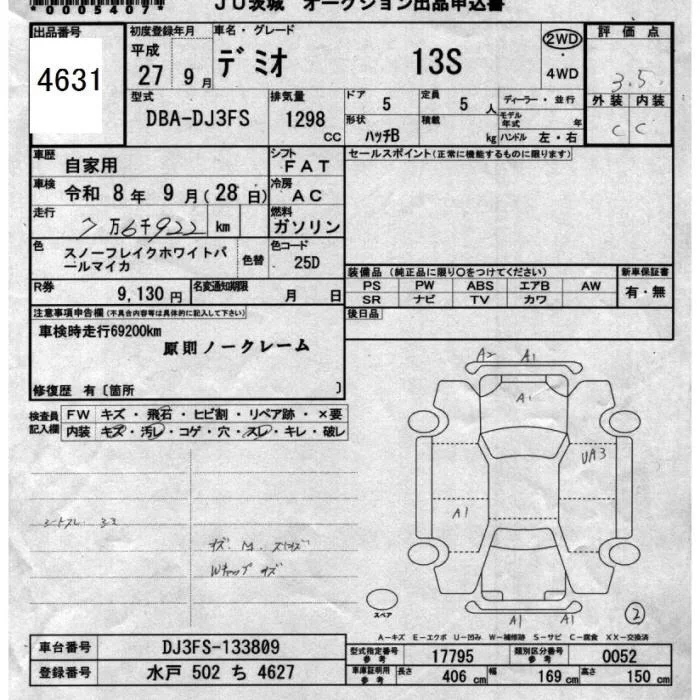 *00005407*
JU茨城 オークション出品申込書
出品番号
4631
初度登録年月
平成
27 9 月
車名・グレード
デミオ 13S
2WD
・
4WD
評価点
3.5
外装 内装
C C
型式
DBA-DJ3FS
排気量
1298
CC
ドア
5
定員
5 人
ディーラー・並行
モデル年式 年
形状
ハッチB
積載
kg
ハンドル 左・右
車歴
自家用
シフト
FAT
車検
令和 8 年 9 月(28 日)
冷房
AC
走行
7万6千922 km
燃料
ガソリン
色
スノーフレイクホワイトパ
ールマイカ
色替
色コード
25D
R券
9,130 円
名変通知期限
月 日
セールスポイント(正常に機能するものに限ります)
装備品(純正品に限り○をつけてください)
PS PW ABS エアB AW
SR ナビ TV カワ
新車保証書
有・無
後日品
注意事項申告欄(不具合内容等は具体的に記入して下さい)
車検時走行69200km
原則ノークレーム
修復歴 有〔箇所 〕
検査員
記入欄
FW キズ・飛石・ヒビ割・リペア跡・×要
内装 キズ・汚レ・コゲ・穴・スレ・キレ・破レ
A2 A1
A1
UA3
A1
A1 A1
シートスレ ヨゴ
キズ
Wキャップ キズ
スペア
②
A-キズ E-エクボ U-凹み W-補修跡 S-サビ C-腐食 XX-交換済
車台番号
DJ3FS-133809
登録番号
水戸 502 ち 4627
型式指定番号
参考
17795
類別区分番号
参考
0052
車庫証明用
参考
長さ
406 cm
幅
169 cm
高さ
150 cm